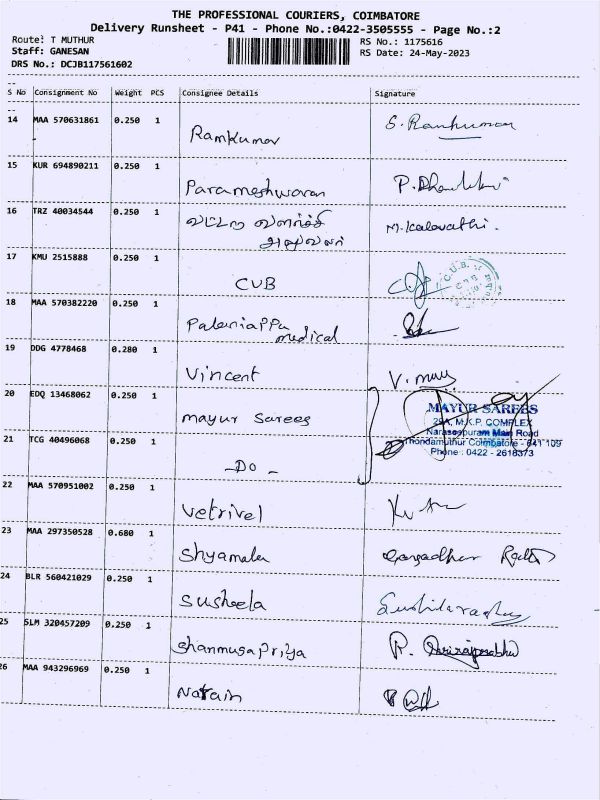 THE PROFESSIONAL COURIERS, COIMBATORE
Delivery Runsheet - P41 - Phone No.:0422-3505555 - Page No.:2
Route: T MUTHUR
RS No.: 1175616
Staff: GANESAN
RS Date: 24-May-2023
DRS No.: DCJB117561602
S No Consignment No Weight PCS Consignee Details Signature
14 MAA 570631861 0.250 1 Ramkumar S. Ramkumar
15 KUR 694890211 0.250 1 Parameshwaran
16 TRZ 40034544 0.250 1 வட்டார வளர்ச்சி M. Kalavathi.
அலுவலர்
17 KMU 2515888 0.250 1 CUB C.U.B.
18 MAA 570382220 0.250 1 Palaniappa
medical
19 DDG 4778468 0.280 1 Vincent
20 EDQ 13468062 0.250 1 mayur Sarees MAYUR SAREES
29A, M.K.P. COMPLEX
Naraseepuram Main Road
21 TCG 40496068 0.250 1 - DO - Thondamuthur Coimbatore - 641 109
Phone : 0422 - 2618373
22 MAA 570951002 0.250 1 vetrivel
23 MAA 297350528 0.680 1 Shyamala
24 BLR 560421029 0.250 1 Susheela
25 SLM 320457209 0.250 1 Shanmugapriya
26 MAA 943296969 0.250 1 Narain